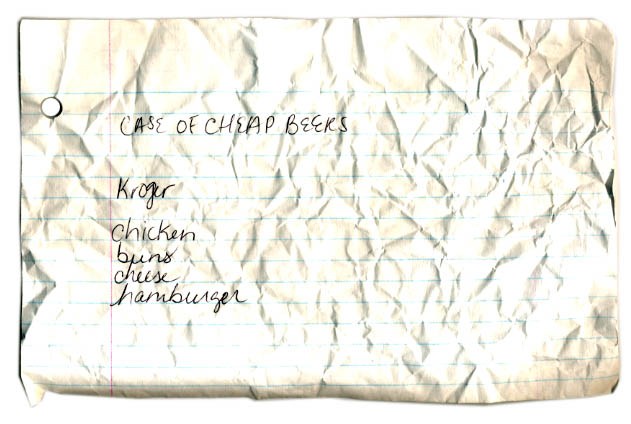 CASE OF CHEAP BEERS
Kroger
chicken
buns
cheese
hamburger